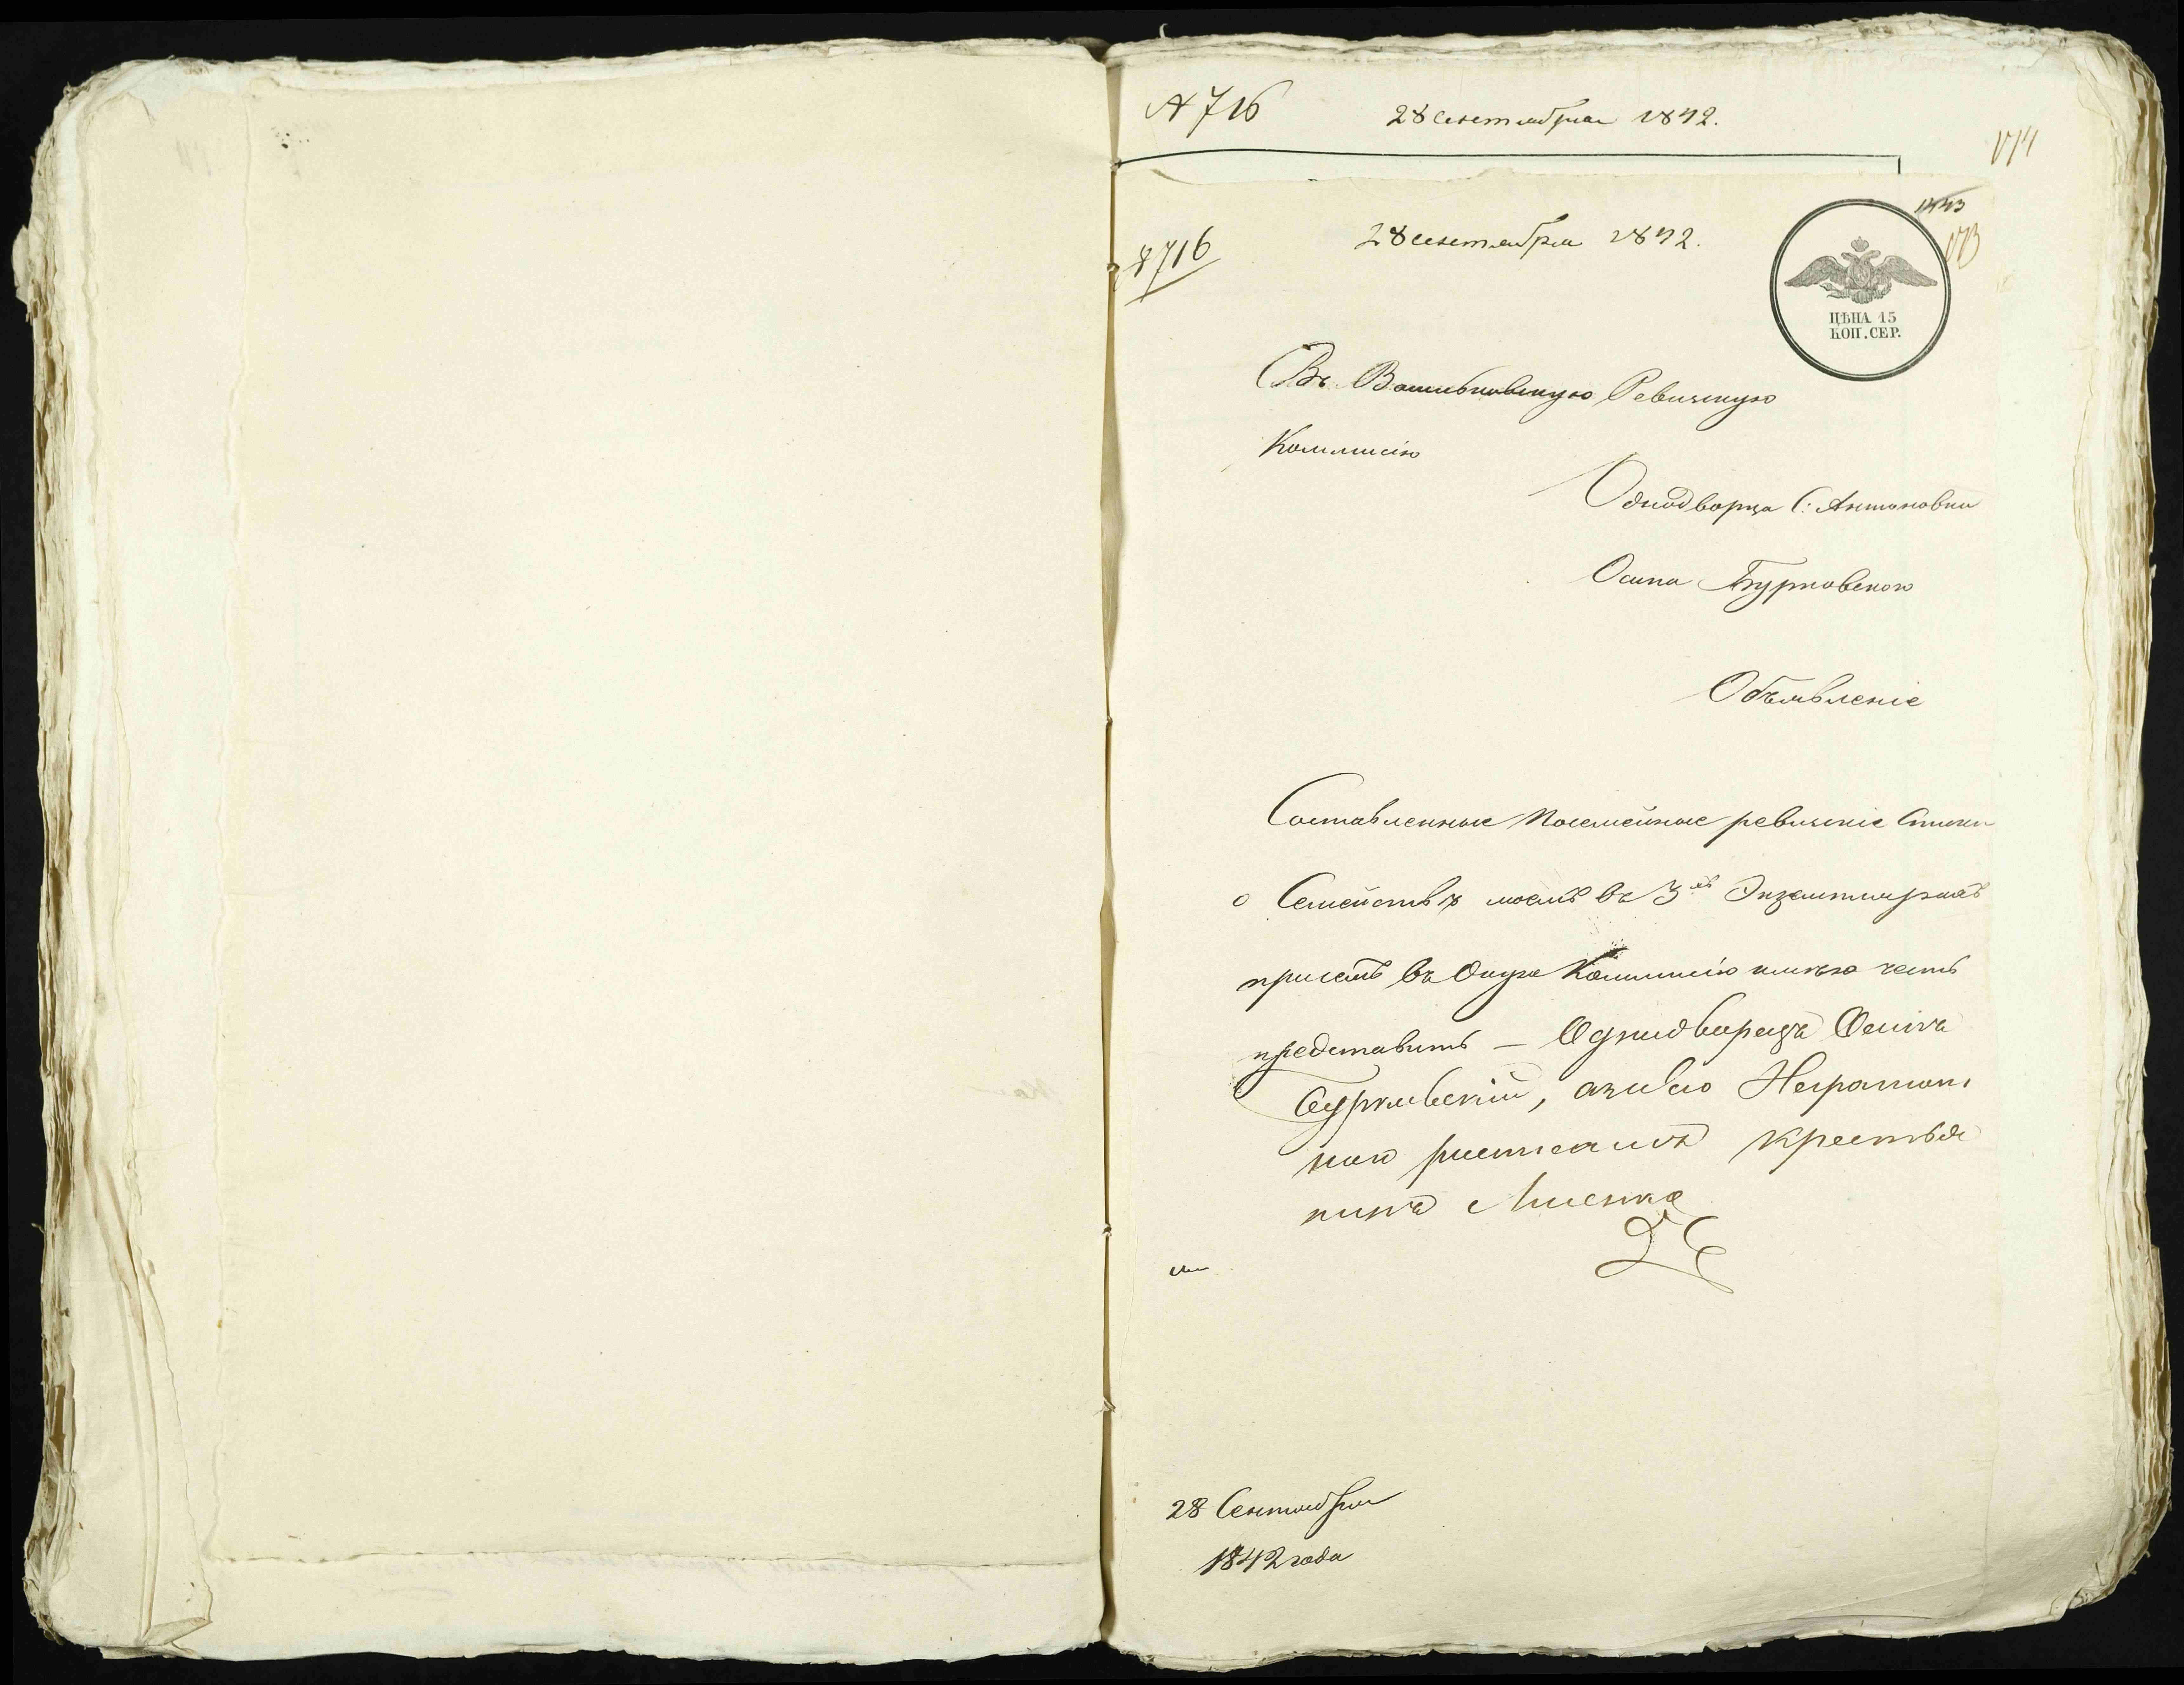 № 716 28 сентября 1842.
174
173
№ 716 28 сентября 1842.
ЦѢНА 15
КОП. СЕР.
Въ Васильковскую Ревизскую
Коммисію
Однодворца С: Антоновки
Осипа Бурковского
Объявленіе
Составленные Посемейные ревизскіе Списки
о Семействѣ моемъ въ 3хъ Экземплярахъ
при семъ въ Оную Коммисію имѣю честь
представить – Однодворецъ Осипъ
Бурковскій, а за его Неграмот
ного росписался крестья
нинъ
28 Сентября
1842 года